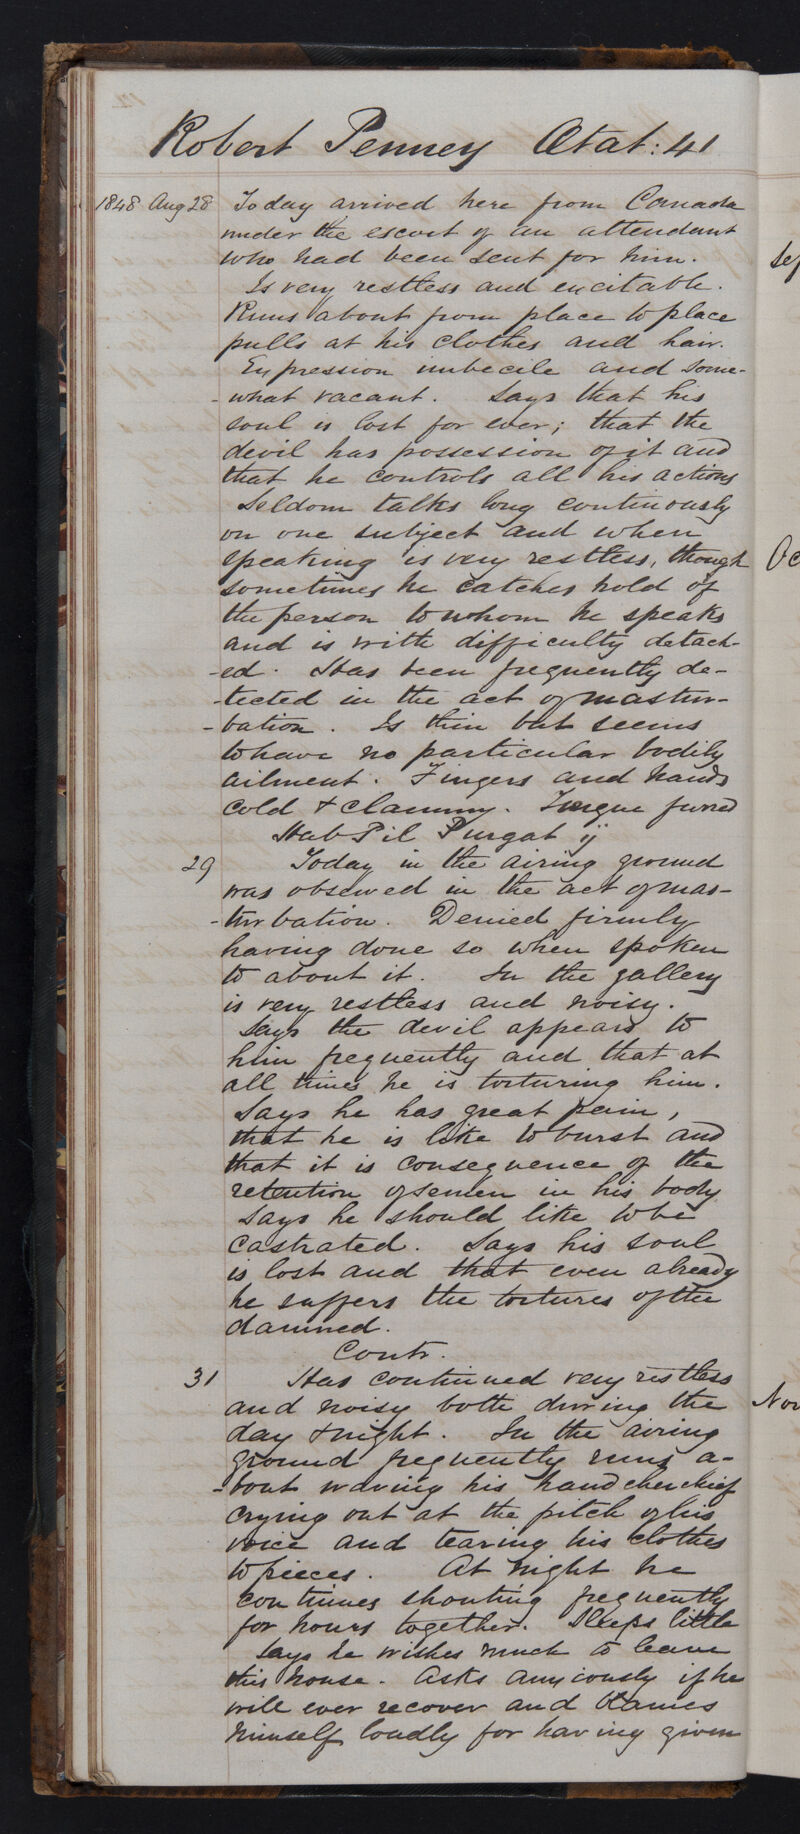 Robert Penney Ætat: 41
1848 Aug 28 Today arrived here from Canada
under the escort of an attendant
who had been sent for him.
Is very restless and excitable.
Runs about from place to place
pulls at his clothes and hair.
Expression imbecile and some-
-what vacant. Says that his
soul is lost for ever; that the
devil has possession of it and
that he controls all his actions
Seldom talks long continuously
on one subject and when
speaking is very restless, though
sometimes he catches hold of
the person to whom he speaks
and is with difficulty detach-
-ed. Has been frequently de-
-tected in the act of mastur-
-bation. Is thin but seems
to have no particular bodily
ailment. Fingers and hands
cold & clammy. Tongue furred
Hab Pil Purgat ij
29 Today in the airing ground
was observed in the act of mas-
-turbation. Denied firmly
having done so when spoken
to about it. In the gallery
is very restless and noisy.
Says the devil appears to
him frequently and that at
all times he is torturing him.
Says he has great pain,
that he is like to burst and
that it is consequence of the
retention of semen in his body
Says he should like to be
castrated. Says his soul
is lost and that even already
he suffers the tortures of the
damned.
Contr.
31 Has continued very restless
and noisy both during the
day & night. In the airing
ground frequently runs a-
-bout waving his handcherchief
crying out at the pitch of his
voice and tearing his clothes
to pieces. At night he
continues shouting frequently
for hours together. Sleeps little
Says he wishes much to leave
this house. Asks anxiously if he
will ever recover and blames
himself loudly for having given
Sep
Oc
Nov